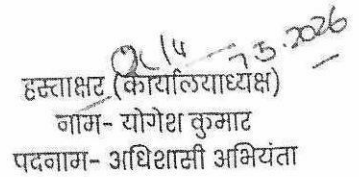 7.3.2026
हस्ताक्षर (कार्यालयाध्यक्ष)
नाम- योगेश कुमार
पदनाम- अधिशासी अभियंता